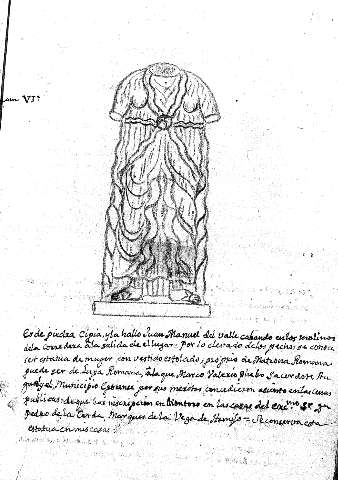 VIª
Es de piedra Cipia, y la hallo Juan Manuel del valle cabando en los molinos
dela corredera ala salida de el lugar. por lo elevado delos pechos se conoce
ser estatua de muger con vestido estolado, proprio de Matrona Romana
puede ser de Romana, ala que Marco Valerio Sacerdote Au
Municipio Eporense por sus meritos concedieron asiento en las cenas
publicas: de que hai inscripcion en Montoro en las casas del Exc.mo Sr. Dn
Pedro de la Cerda Marques de la Vega de Armijo = Se conserva esta
estatua en mis casas